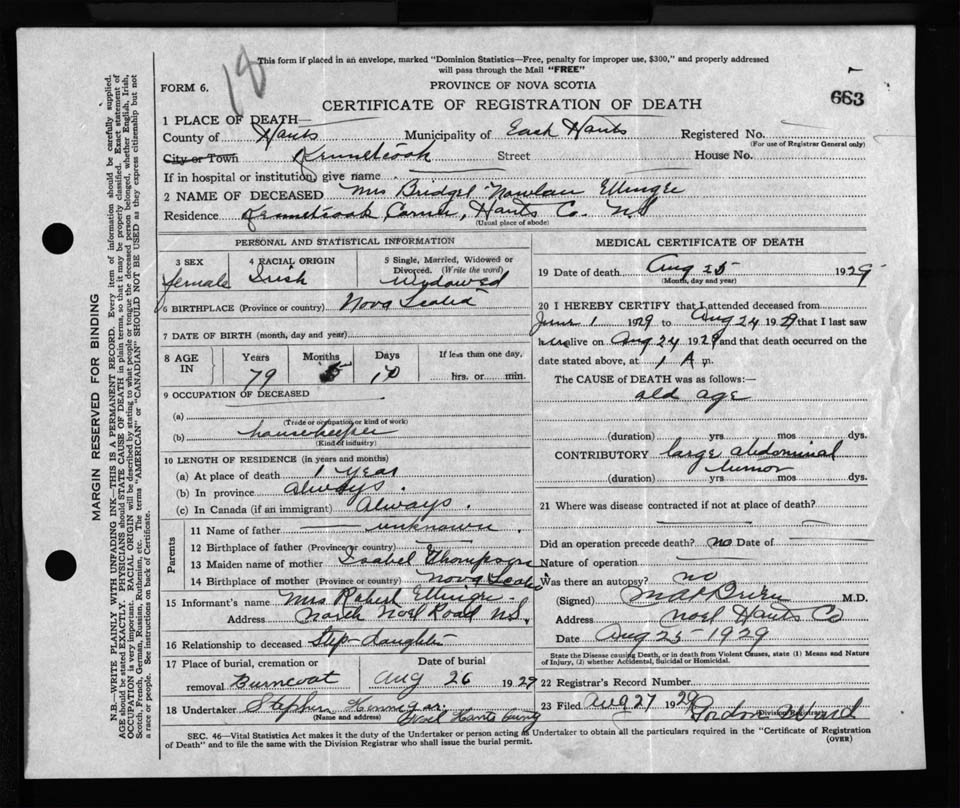 18
This form if placed in an envelope, marked "Dominion Statistics—Free, penalty for improper use, $300," and properly addressed
will pass through the Mail "FREE"
FORM 6.
PROVINCE OF NOVA SCOTIA
663
CERTIFICATE OF REGISTRATION OF DEATH
1 PLACE OF DEATH—
County of Hants Municipality of East Hants Registered No.
(For use of Registrar General only)
City or Town Kennetcook Street House No.
If in hospital or institution, give name
2 NAME OF DECEASED Mrs Bridget Nowlan
Residence Kennetcook Corner, Hants Co. NS
(Usual place of abode)
PERSONAL AND STATISTICAL INFORMATION
3 SEX 4 RACIAL ORIGIN 5 Single, Married, Widowed or
Divorced. (Write the word)
female Irish Widowed
6 BIRTHPLACE (Province or country) Nova Scotia
7 DATE OF BIRTH (month, day and year)
8 AGE IN Years Months Days If less than one day.
79 5 10 hrs. or min.
9 OCCUPATION OF DECEASED
(a)
(Trade or occupation or kind of work)
(b) housekeeper
(Kind of industry)
10 LENGTH OF RESIDENCE (in years and months)
(a) At place of death 1 year
(b) In province always.
(c) In Canada (if an immigrant) Always.
Parents
11 Name of father unknown.
12 Birthplace of father (Province or country)
13 Maiden name of mother Isabel Thompson
14 Birthplace of mother (Province or country) Nova Scotia
15 Informant's name Mrs Robert
Address North Noel Road N.S.
16 Relationship to deceased Step-daughter
17 Place of burial, cremation or Date of burial
removal Burncoat Aug 26 1929
18 Undertaker Stephen Hennigar
(Name and address) Noel Hants County
MEDICAL CERTIFICATE OF DEATH
19 Date of death Aug 25 1929
(Month, day and year)
20 I HEREBY CERTIFY that I attended deceased from
June 1 1929 to Aug 24 1929 that I last saw
alive on Aug 24 1929 and that death occurred on the
date stated above, at 1 A m.
The CAUSE OF DEATH was as follows:—
old age
(duration) yrs mos dys.
CONTRIBUTORY large abdominal
tumor
(duration) yrs. mos. dys.
21 Where was disease contracted if not at place of death?
Did an operation precede death? no Date of
Nature of operation
Was there an autopsy? no
(Signed) M.D.
Address Noel Hants Co
Date Aug 25-1929
State the Disease causing Death, or in death from Violent Causes, state (1) Means and Nature
of Injury, (2) whether Accidental, Suicidal or Homicidal.
22 Registrar's Record Number
23 Filed Aug 27 1929
(Division Registrar)
SEC. 46—Vital Statistics Act makes it the duty of the Undertaker or person acting as Undertaker to obtain all the particulars required in the "Certificate of Registration
of Death" and to file the same with the Division Registrar who shall issue the burial permit. (OVER)
MARGIN RESERVED FOR BINDING
N.B.—WRITE PLAINLY WITH UNFADING INK—THIS IS A PERMANENT RECORD. Every item of information should be carefully supplied.
AGE should be stated EXACTLY. PHYSICIANS should STATE CAUSE OF DEATH in plain terms, so that it may be properly classified. Exact statement of
OCCUPATION is very important. RACIAL ORIGIN will be described by stating to what people or tongue the deceased person belonged, whether English, Irish,
Scotch, French, German, Russian, Ruthenian, etc. The terms "AMERICAN" or "CANADIAN" SHOULD NOT BE USED as they express citizenship but not
a race or people. See instructions on back of Certificate.